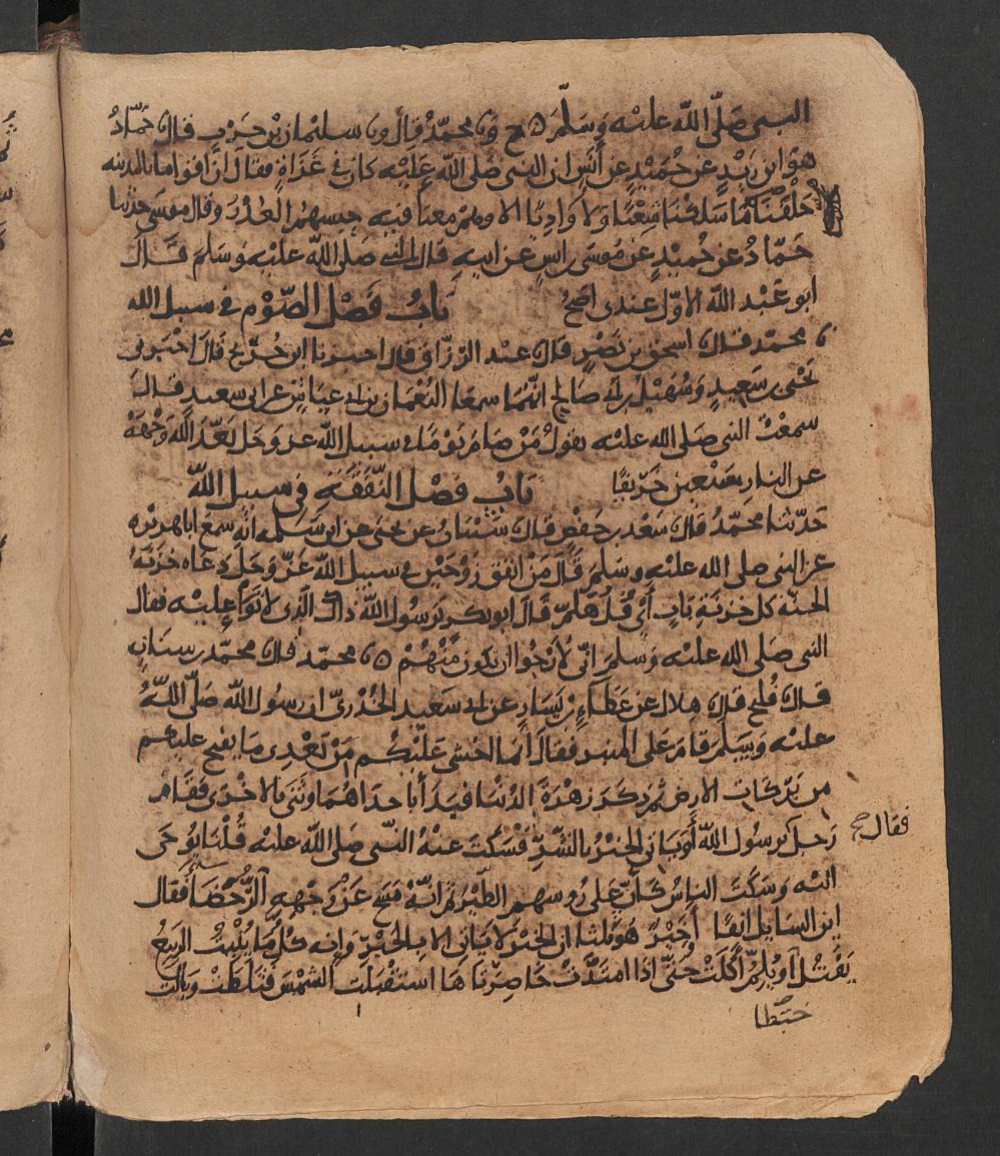 النبي صلى الله عليه وسلم ح ونا محمد قال ونا سليمان بن حرب قال حماد
هو ابن زيد عن حميد عن أنس ان النبي صلى الله عليه كان في غزاة فقال ان اقواما بالمدينه
خلفنا ما سلكنا شعبا ولا واديا الا وهم معنا فيه حبسهم العذر وقال موسى حدثنا
حماد عن حميد عن موسى بن انس عن ابيه قال النبي صلى الله عليه وسلم قال
ابو عبد الله الاول عندي اصح باب فضل الصوم في سبيل الله
نا محمد قال اسحق بن نصر قال عبد الرزاق قال اخبرنا ابن جريج قال اخبرني
يحيى بن سعيد وسهيل بن ابي صالح انهما سمعا النعمان بن ابي عياش عن ابي سعيد قال
سمعت النبي صلى الله عليه يقول من صام يوما في سبيل الله عز وجل بعد الله وجهه
عن النار سبعين خريفا باب فضل النفقة في سبيل الله
حدثنا محمد قال سعد بن حفص قال شيبان عن يحيى عن ابي سلمه انه سمع ابا هريره
عن النبي صلى الله عليه وسلم قال من انفق زوجين في سبيل الله عز وجل دعاه خزنة
الجنة كل خزنة باب أي فل هلم قال ابو بكر يرسول الله ذاك الذي لا توا عليه فقال
النبي صلى الله عليه وسلم اني لأرجوا ان تكون منهم نا محمد قال محمد بن سنان
قال فليح قال هلال عن عطاء بن يسار عن ابي سعيد الخدري ان رسول الله صلى الله
عليه وسلم قام على المنبر فقال انما اخشى عليكم من بعدي ما يفتح عليكم
من بركات الارض ثم ذكر زهرة الدنيا فبدأ باحداهما وثنى بالاخرى فقام
رجل يرسول الله أويأتي الخير بالشر فسكت عنه النبي صلى الله عليه قلنا يوحى
فقال صح
اليه وسكت الناس كأن على روسهم الطير ثم انه مسح عن وجهه الرحضاء فقال
اين السايل انفا أخير هو ثلثا ان الخير لا ياتي الا بالخير وانه كل ما ينبت الربيع
يقتل أو يلم أكلت حتى اذا امتدت خاصرتاها استقبلت الشمس فثلطت وبالت
حبطا